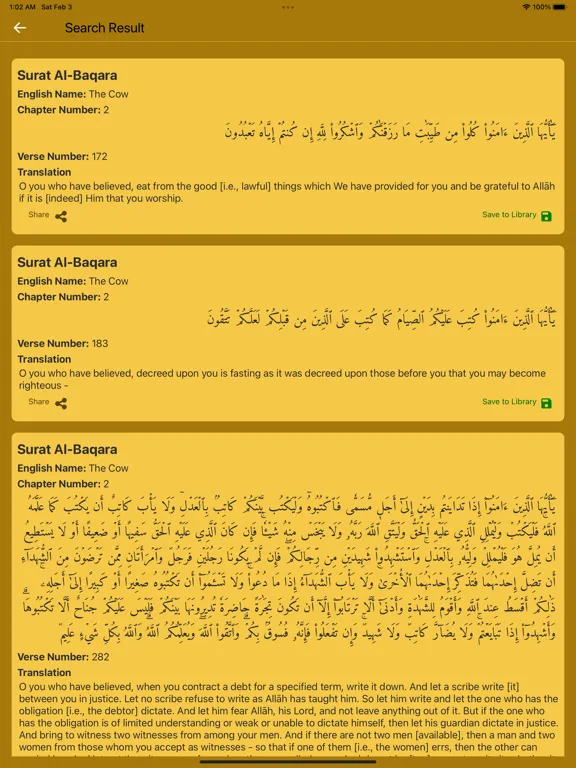 1:02 AM Sat Feb 3
100%
Search Result
Surat Al-Baqara
English Name: The Cow
Chapter Number: 2
يَٰٓأَيُّهَا ٱلَّذِينَ ءَامَنُوا۟ كُلُوا۟ مِن طَيِّبَٰتِ مَا رَزَقْنَٰكُمْ وَٱشْكُرُوا۟ لِلَّهِ إِن كُنتُمْ إِيَّاهُ تَعْبُدُونَ
Verse Number: 172
Translation
O you who have believed, eat from the good [i.e., lawful] things which We have provided for you and be grateful to Allāh
if it is [indeed] Him that you worship.
Share
Save to Library
Surat Al-Baqara
English Name: The Cow
Chapter Number: 2
يَٰٓأَيُّهَا ٱلَّذِينَ ءَامَنُوا۟ كُتِبَ عَلَيْكُمُ ٱلصِّيَامُ كَمَا كُتِبَ عَلَى ٱلَّذِينَ مِن قَبْلِكُمْ لَعَلَّكُمْ تَتَّقُونَ
Verse Number: 183
Translation
O you who have believed, decreed upon you is fasting as it was decreed upon those before you that you may become
righteous -
Share
Save to Library
Surat Al-Baqara
English Name: The Cow
Chapter Number: 2
يَٰٓأَيُّهَا ٱلَّذِينَ ءَامَنُوٓا۟ إِذَا تَدَايَنتُم بِدَيْنٍ إِلَىٰٓ أَجَلٍ مُّسَمًّى فَٱكْتُبُوهُ وَلْيَكْتُب بَّيْنَكُمْ كَاتِبٌۢ بِٱلْعَدْلِ وَلَا يَأْبَ كَاتِبٌ أَن يَكْتُبَ كَمَا عَلَّمَهُ
ٱللَّهُ فَلْيَكْتُبْ وَلْيُمْلِلِ ٱلَّذِى عَلَيْهِ ٱلْحَقُّ وَلْيَتَّقِ ٱللَّهَ رَبَّهُۥ وَلَا يَبْخَسْ مِنْهُ شَيْـًٔا فَإِن كَانَ ٱلَّذِى عَلَيْهِ ٱلْحَقُّ سَفِيهًا أَوْ ضَعِيفًا أَوْ لَا يَسْتَطِيعُ
أَن يُمِلَّ هُوَ فَلْيُمْلِلْ وَلِيُّهُۥ بِٱلْعَدْلِ وَٱسْتَشْهِدُوا۟ شَهِيدَيْنِ مِن رِّجَالِكُمْ فَإِن لَّمْ يَكُونَا رَجُلَيْنِ فَرَجُلٌ وَٱمْرَأَتَانِ مِمَّن تَرْضَوْنَ مِنَ ٱلشُّهَدَآءِ
أَن تَضِلَّ إِحْدَىٰهُمَا فَتُذَكِّرَ إِحْدَىٰهُمَا ٱلْأُخْرَىٰ وَلَا يَأْبَ ٱلشُّهَدَآءُ إِذَا مَا دُعُوا۟ وَلَا تَسْـَٔمُوٓا۟ أَن تَكْتُبُوهُ صَغِيرًا أَوْ كَبِيرًا إِلَىٰٓ أَجَلِهِۦ
ذَٰلِكُمْ أَقْسَطُ عِندَ ٱللَّهِ وَأَقْوَمُ لِلشَّهَٰدَةِ وَأَدْنَىٰٓ أَلَّا تَرْتَابُوٓا۟ إِلَّآ أَن تَكُونَ تِجَٰرَةً حَاضِرَةً تُدِيرُونَهَا بَيْنَكُمْ فَلَيْسَ عَلَيْكُمْ جُنَاحٌ أَلَّا تَكْتُبُوهَا
وَأَشْهِدُوٓا۟ إِذَا تَبَايَعْتُمْ وَلَا يُضَآرَّ كَاتِبٌ وَلَا شَهِيدٌ وَإِن تَفْعَلُوا۟ فَإِنَّهُۥ فُسُوقٌۢ بِكُمْ وَٱتَّقُوا۟ ٱللَّهَ وَيُعَلِّمُكُمُ ٱللَّهُ وَٱللَّهُ بِكُلِّ شَىْءٍ عَلِيمٌ
Verse Number: 282
Translation
O you who have believed, when you contract a debt for a specified term, write it down. And let a scribe write [it]
between you in justice. Let no scribe refuse to write as Allāh has taught him. So let him write and let the one who has the
obligation [i.e., the debtor] dictate. And let him fear Allāh, his Lord, and not leave anything out of it. But if the one who
has the obligation is of limited understanding or weak or unable to dictate himself, then let his guardian dictate in justice.
And bring to witness two witnesses from among your men. And if there are not two men [available], then a man and two
women from those whom you accept as witnesses - so that if one of them [i.e., the women] errs, then the other can